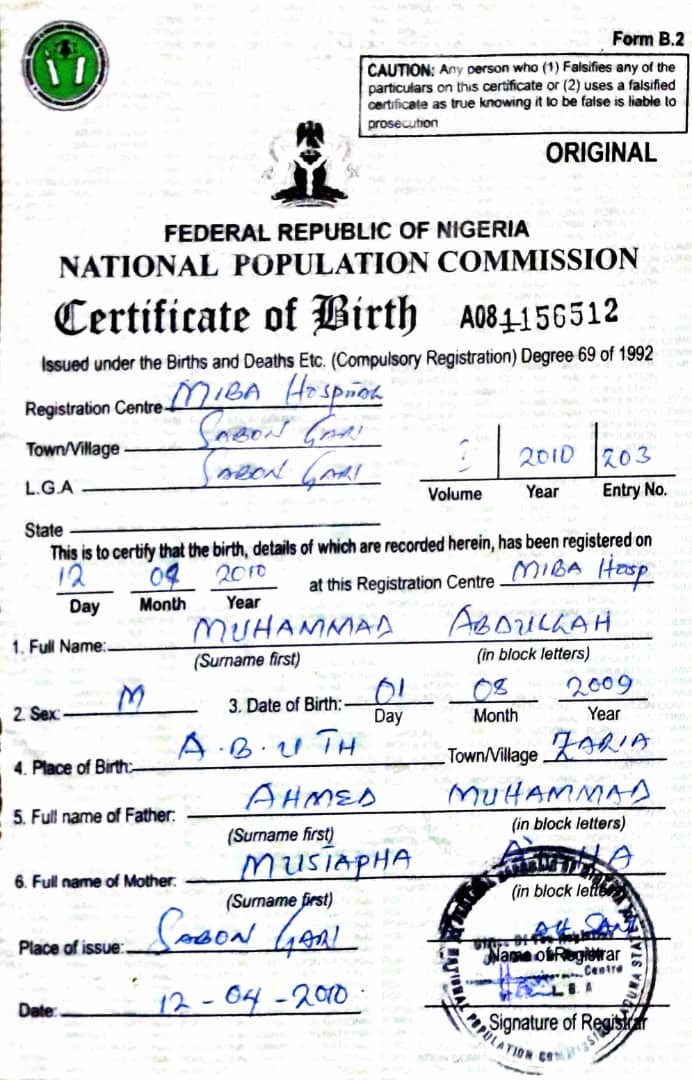 Form B.2
CAUTION: Any person who (1) Falsifies any of the
particulars on this certificate or (2) uses a falsified
certificate as true knowing it to be false is liable to
prosecution
ORIGINAL
FEDERAL REPUBLIC OF NIGERIA
NATIONAL POPULATION COMMISSION
Certificate of Birth
Issued under the Births and Deaths Etc. (Compulsory Registration) Degree 69 of 1992
Registration Centre MIBA Hospital
Town/Village SABON GARI
L.G.A SABON GARI
2010 203
Volume Year Entry No.
State
This is to certify that the birth, details of which are recorded herein, has been registered on
12 04 2010 at this Registration Centre MIBA Hosp
Day Month Year
1. Full Name: MUHAMMAD ABDULLAH
(Surname first) (in block letters)
2. Sex: M 3. Date of Birth: 01 08 2009
Day Month Year
4. Place of Birth: A.B.U TH Town/Village ZARIA
5. Full name of Father: AHMED MUHAMMAD
(Surname first) (in block letters)
6. Full name of Mother: MUSTAPHA
(Surname first) (in block letters)
Place of issue: SABON GARI
Name of Registrar
Date: 12-04-2010
Signature of Registrar
NATIONAL POPULATION COMMISSION